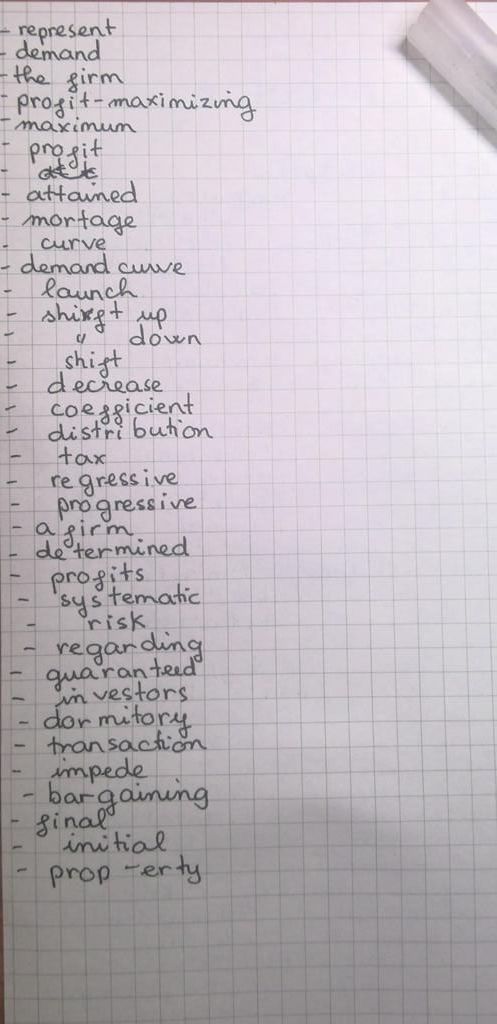 - represent
- demand
- the firm
- profit-maximizing
- maximum
- profit
-
- attained
- mortage
- curve
- demand curve
- launch
- shift up
- " down
- shift
- decrease
- coefficient
- distribution
- tax
- regressive
- progressive
- a firm
- determined
- profits
- systematic
- risk
- regarding
- guaranteed
- investors
- dormitory
- transaction
- impede
- bargaining
- final
- initial
- prop-erty